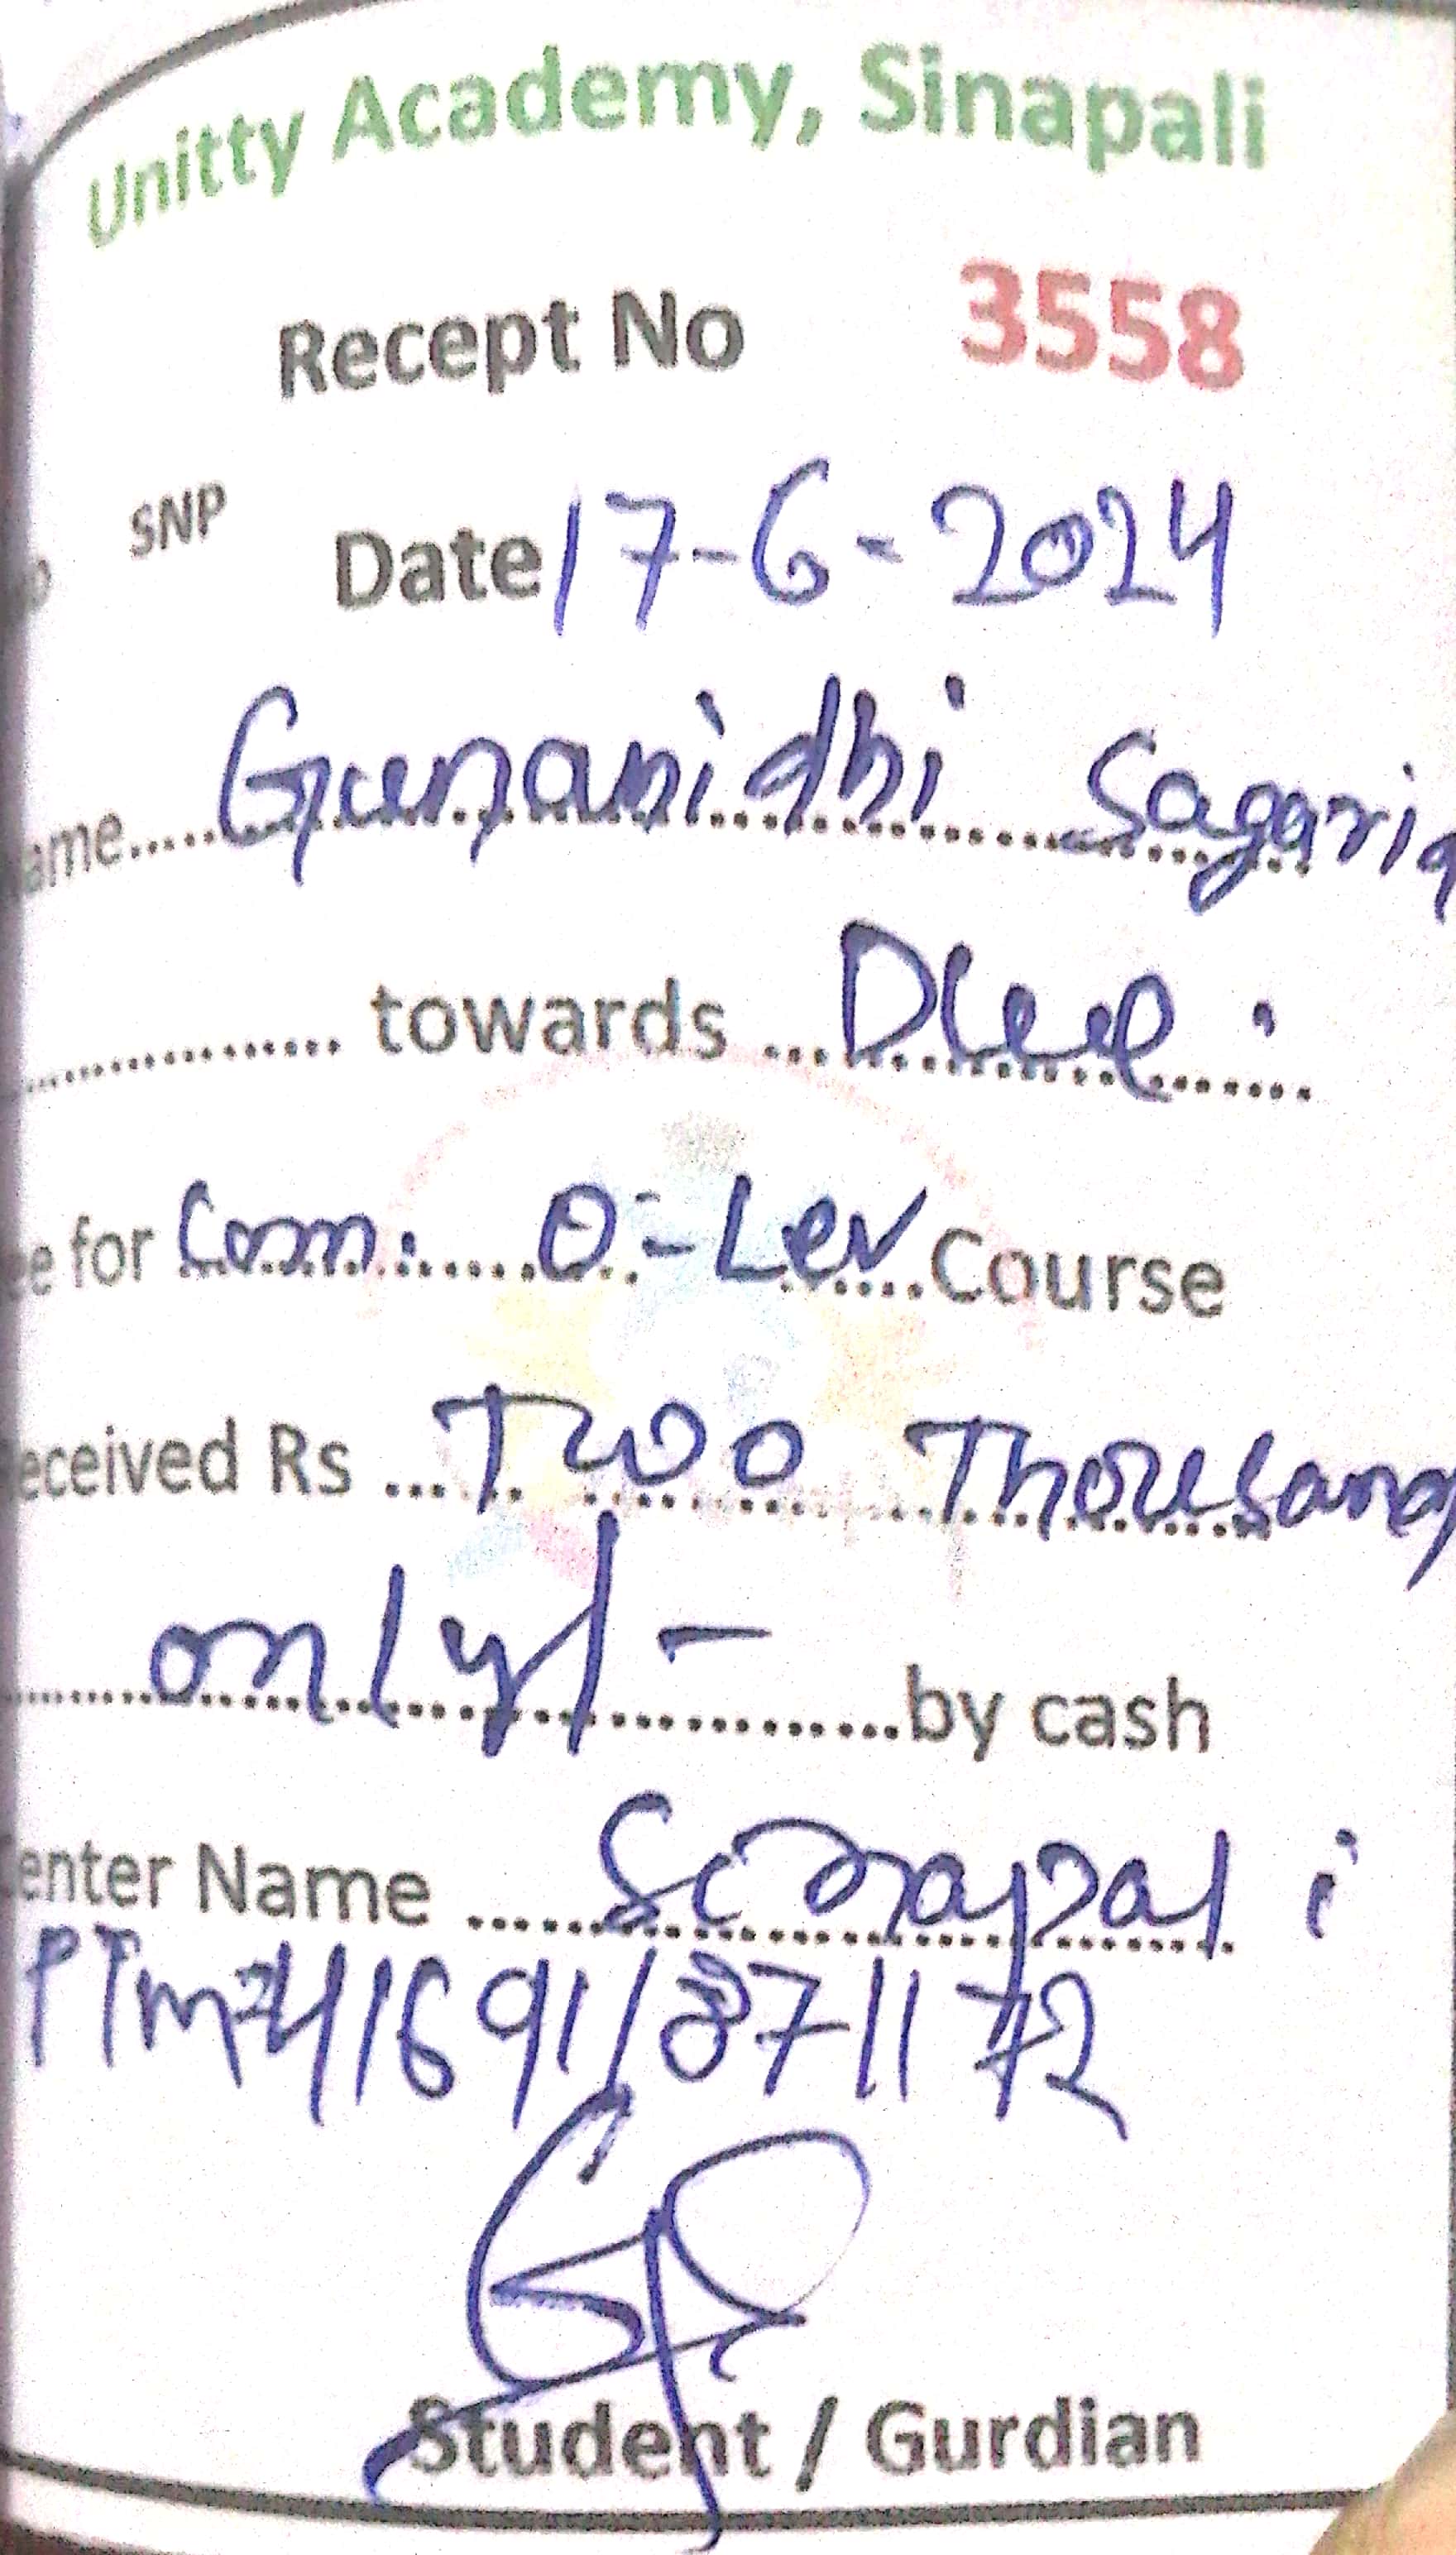 Unitty Academy, Sinapali
Recept No 3558
SNP
Date 17-6-2024
ame..... Gunanidhi Sagaria
............... towards ... Due .
e for Com: ..... O - Lev .... Course
eceived Rs ... Two Thousand
only/- ............ by cash
enter Name ..... Sinapali
PTm-416911871172
Student / Gurdian